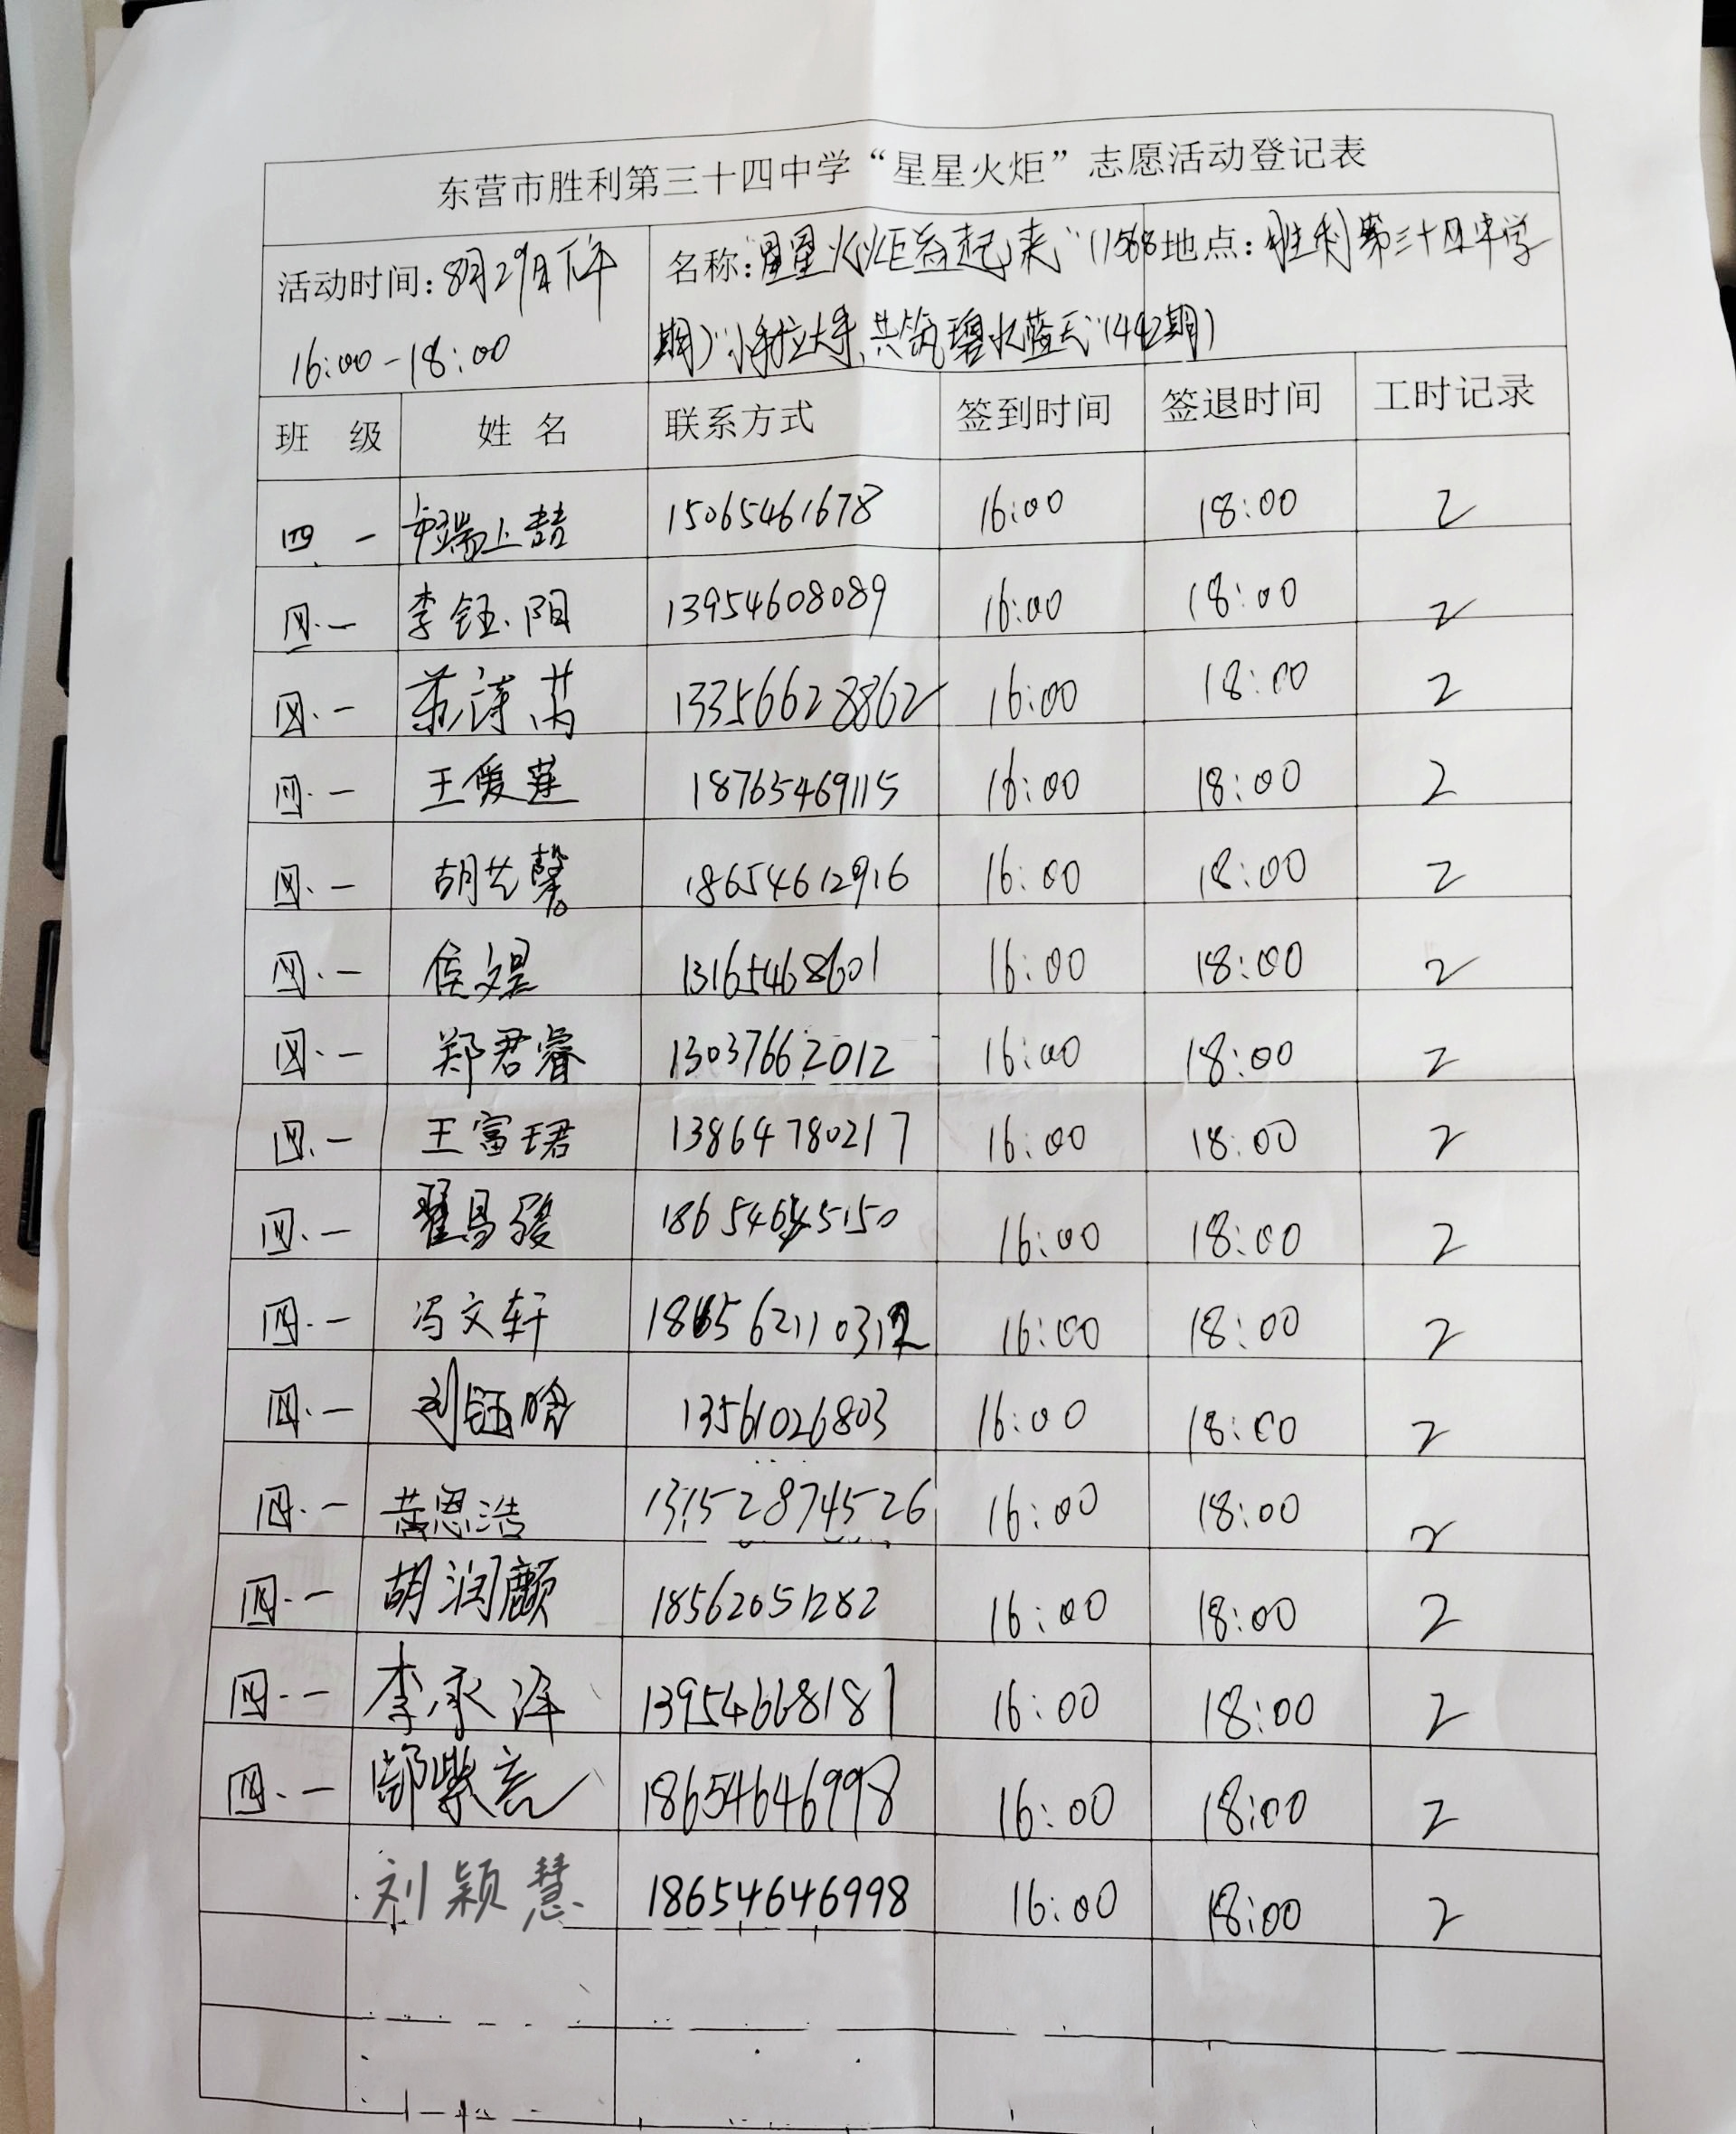 东营市胜利第三十四中学“星星火炬”志愿活动登记表
活动时间:8月29日下午 名称:星星火炬益起来”(1568 地点:胜利第三十四中学
16:00-18:00 期)“小手拉大手,共筑碧水蓝天”(442期)
班 级 姓 名 联系方式 签到时间 签退时间 工时记录
四 一 15065461678 16:00 18:00 2
四.一 李钰阳 13954608089 16:00 18:00 2
四.一 13356628862 16:00 18:00 2
四.一 王媛莲 18765469115 16:00 18:00 2
四.一 胡艺馨 18654612916 16:00 18:00 2
四.一 侯文昊 13165468601 16:00 18:00 2
四.一 郑君睿 13037662012 16:00 18:00 2
四.一 王富珺 13864780217 16:00 18:00 2
四.一 翟昌骏 16:00 18:00 2
四.一 冯文轩 16:00 18:00 2
四.一 刘钰晗 13561026803 16:00 18:00 2
四.一 黄恩浩 16:00 18:00 2
四.一 胡润颜 18562051282 16:00 18:00 2
四.一 李承泽 13954668181 16:00 18:00 2
四.一 18654646998 16:00 18:00 2
刘颖慧 18654646998 16:00 18:00 2